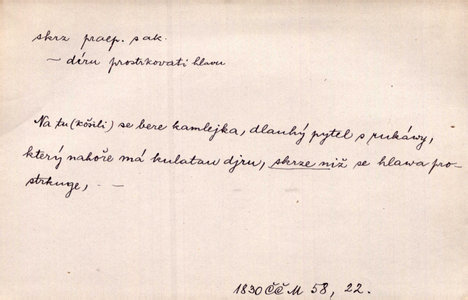 skrz praep. s ak.
— díru prostrkovati hlavu
Na tu (košili) se bere kamlejka, dlauhý pytel s rukáwy,
který nahoře má kulatau djru, skrze niž se hlawa pro-
strkuge, - —
1830 ČČM 58, 22.